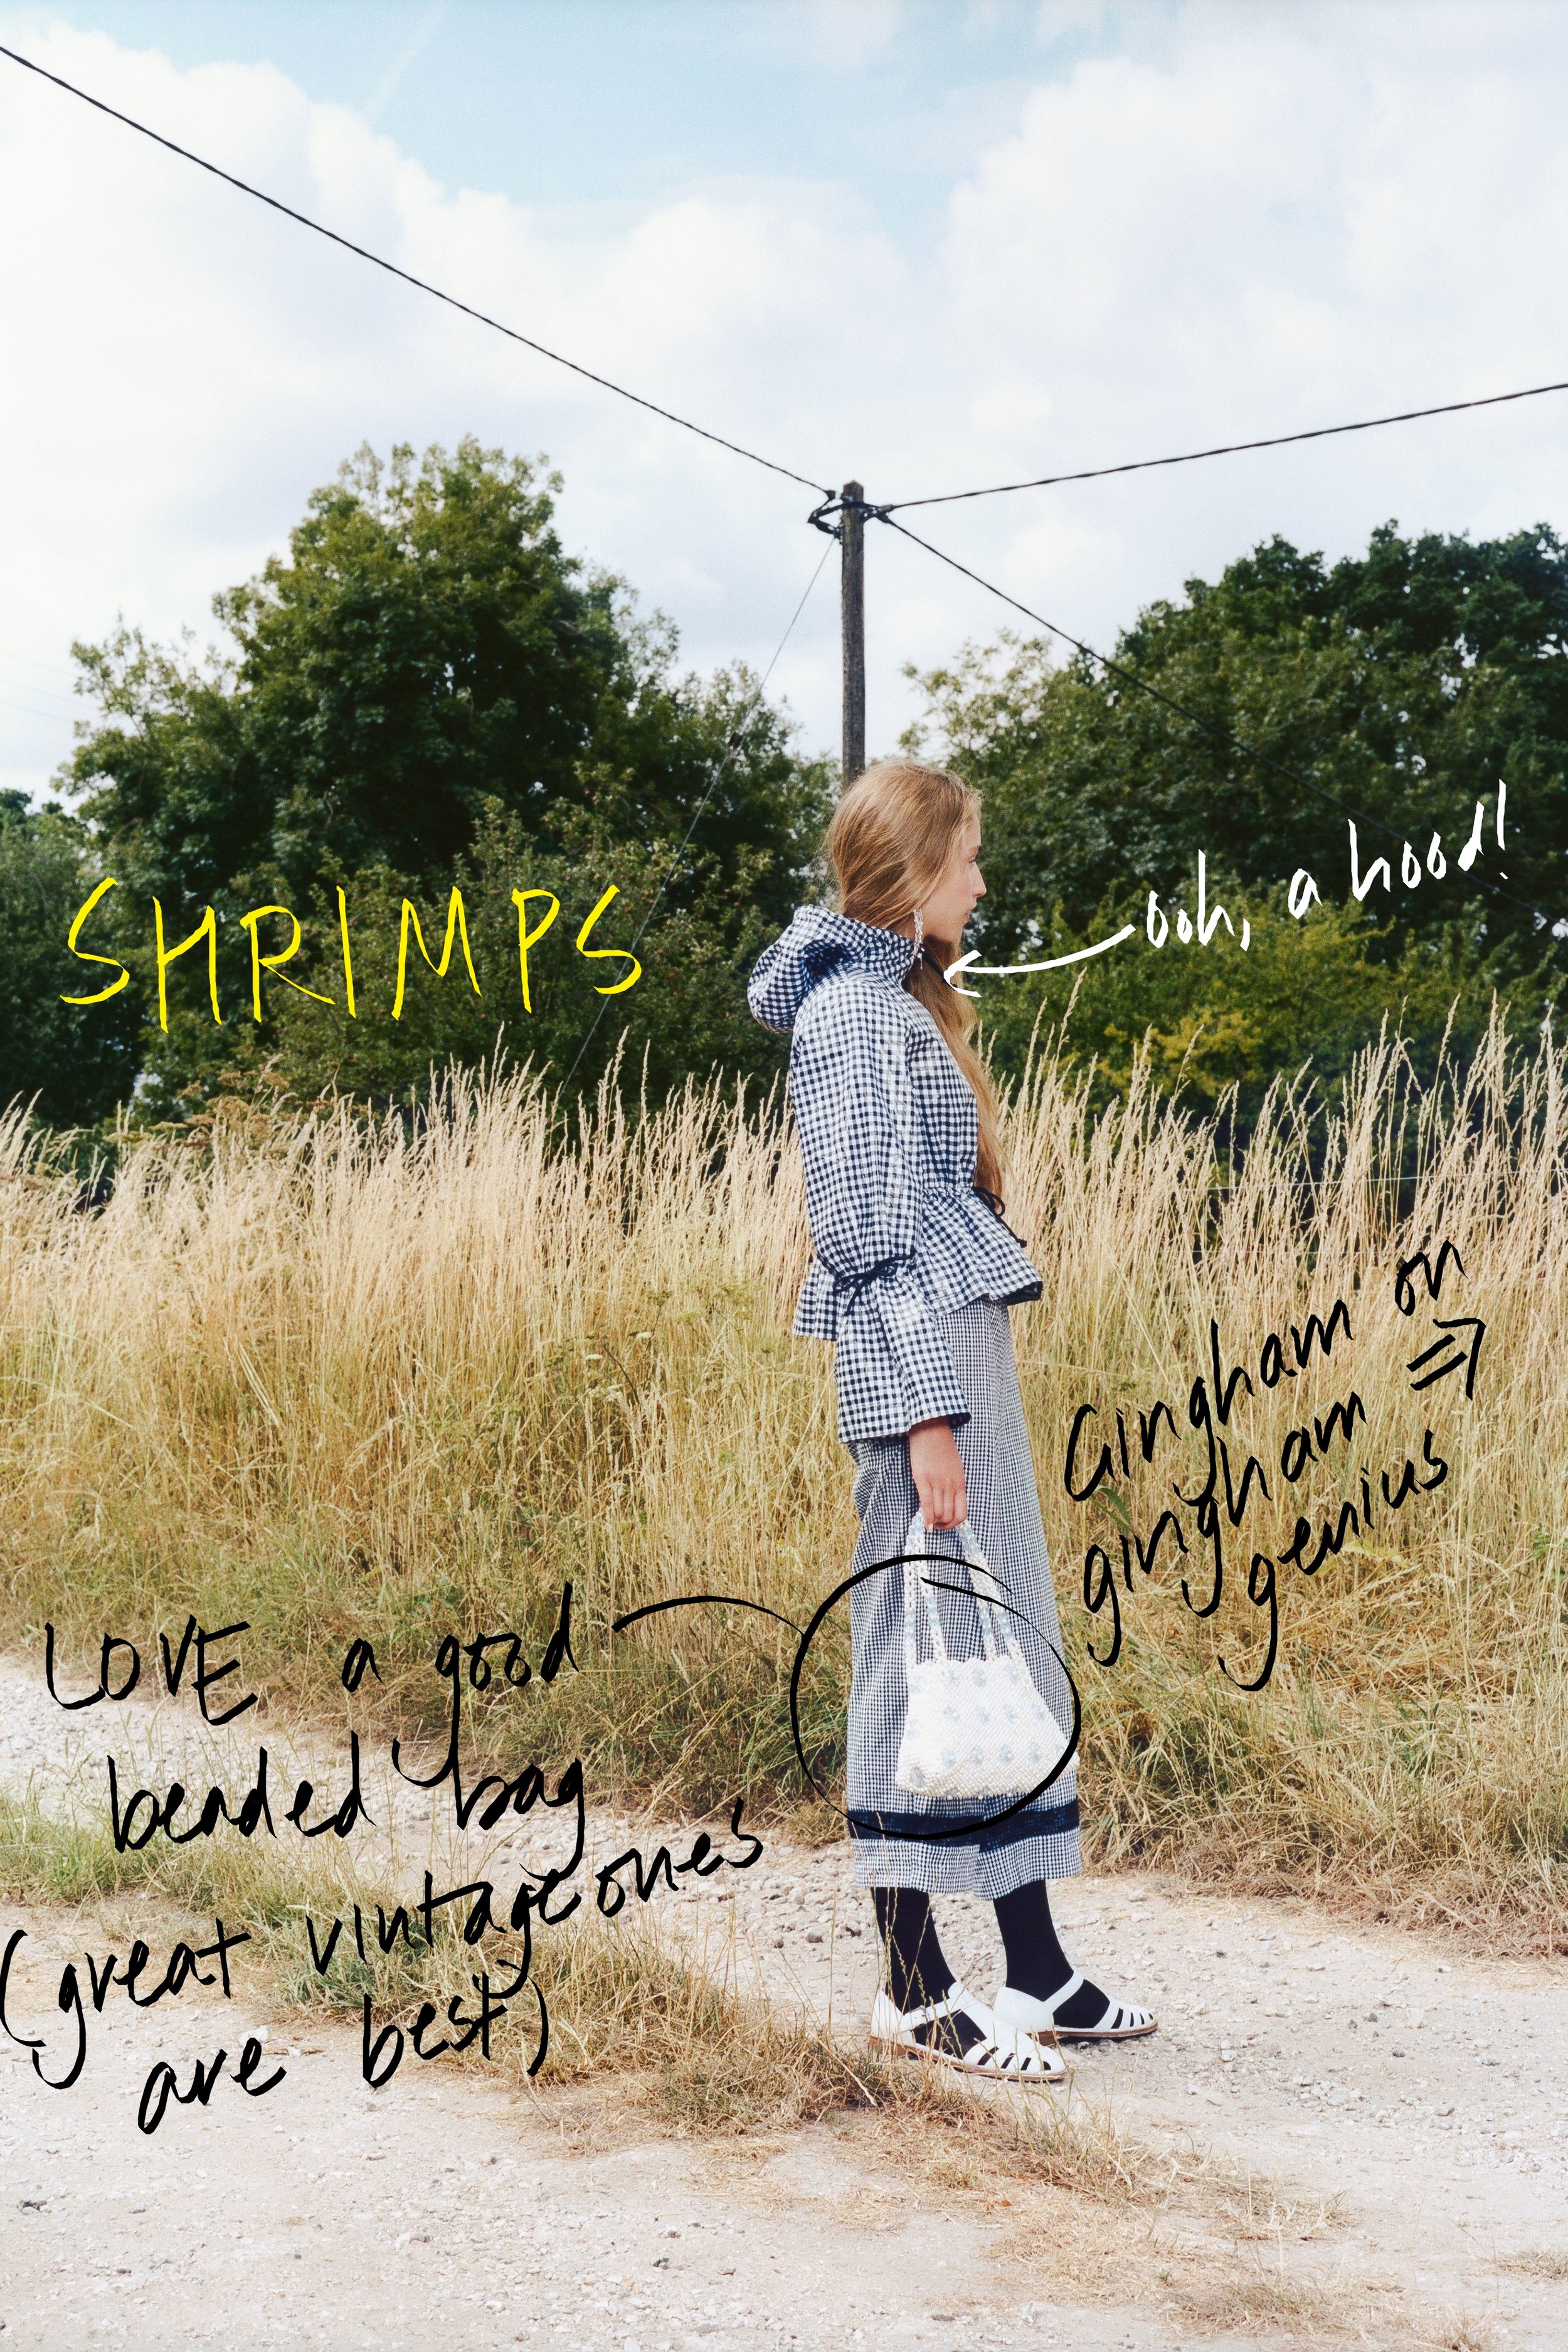 SHRIMPS
ooh, a hood!
Gingham on
gingham ⇒
genius
LOVE a good
beaded bag
(great vintage ones
are best)